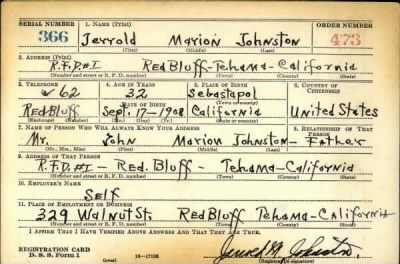 SERIAL NUMBER 1. NAME (Print) ORDER NUMBER
366 Jerrold Marion Johnston 473
(First) (Middle) (Last)
2. ADDRESS (Print)
R.F.D.#1 Red Bluff-Tehama-California
(Number and street or R. F. D. number) (Town) (County) (State)
3. TELEPHONE 4. AGE IN YEARS 5. PLACE OF BIRTH 6. COUNTRY OF CITIZENSHIP
62 32 Sebastapol
DATE OF BIRTH
Red Bluff Sept.-17-1908 California United States
(Exchange) (Number) (Mo.) (Day) (Yr.) (State or country)
7. NAME OF PERSON WHO WILL ALWAYS KNOW YOUR ADDRESS 8. RELATIONSHIP OF THAT PERSON
Mr. John Marion Johnston-Father
(Mr., Mrs., Miss) (First) (Middle) (Last)
9. ADDRESS OF THAT PERSON
R.F.D.#1-Red. Bluff- Tehama-California
(Number and street or R. F. D. number) (Town) (County) (State)
10. EMPLOYER'S NAME
Self
11. PLACE OF EMPLOYMENT OR BUSINESS
329 Walnut St. Red Bluff Tehama-California
(Number and street or R. F. D. number) (Town) (County) (State)
I AFFIRM THAT I HAVE VERIFIED ABOVE ANSWERS AND THAT THEY ARE TRUE.
REGISTRATION CARD
D. S. S. Form 1 (over) 16-17105